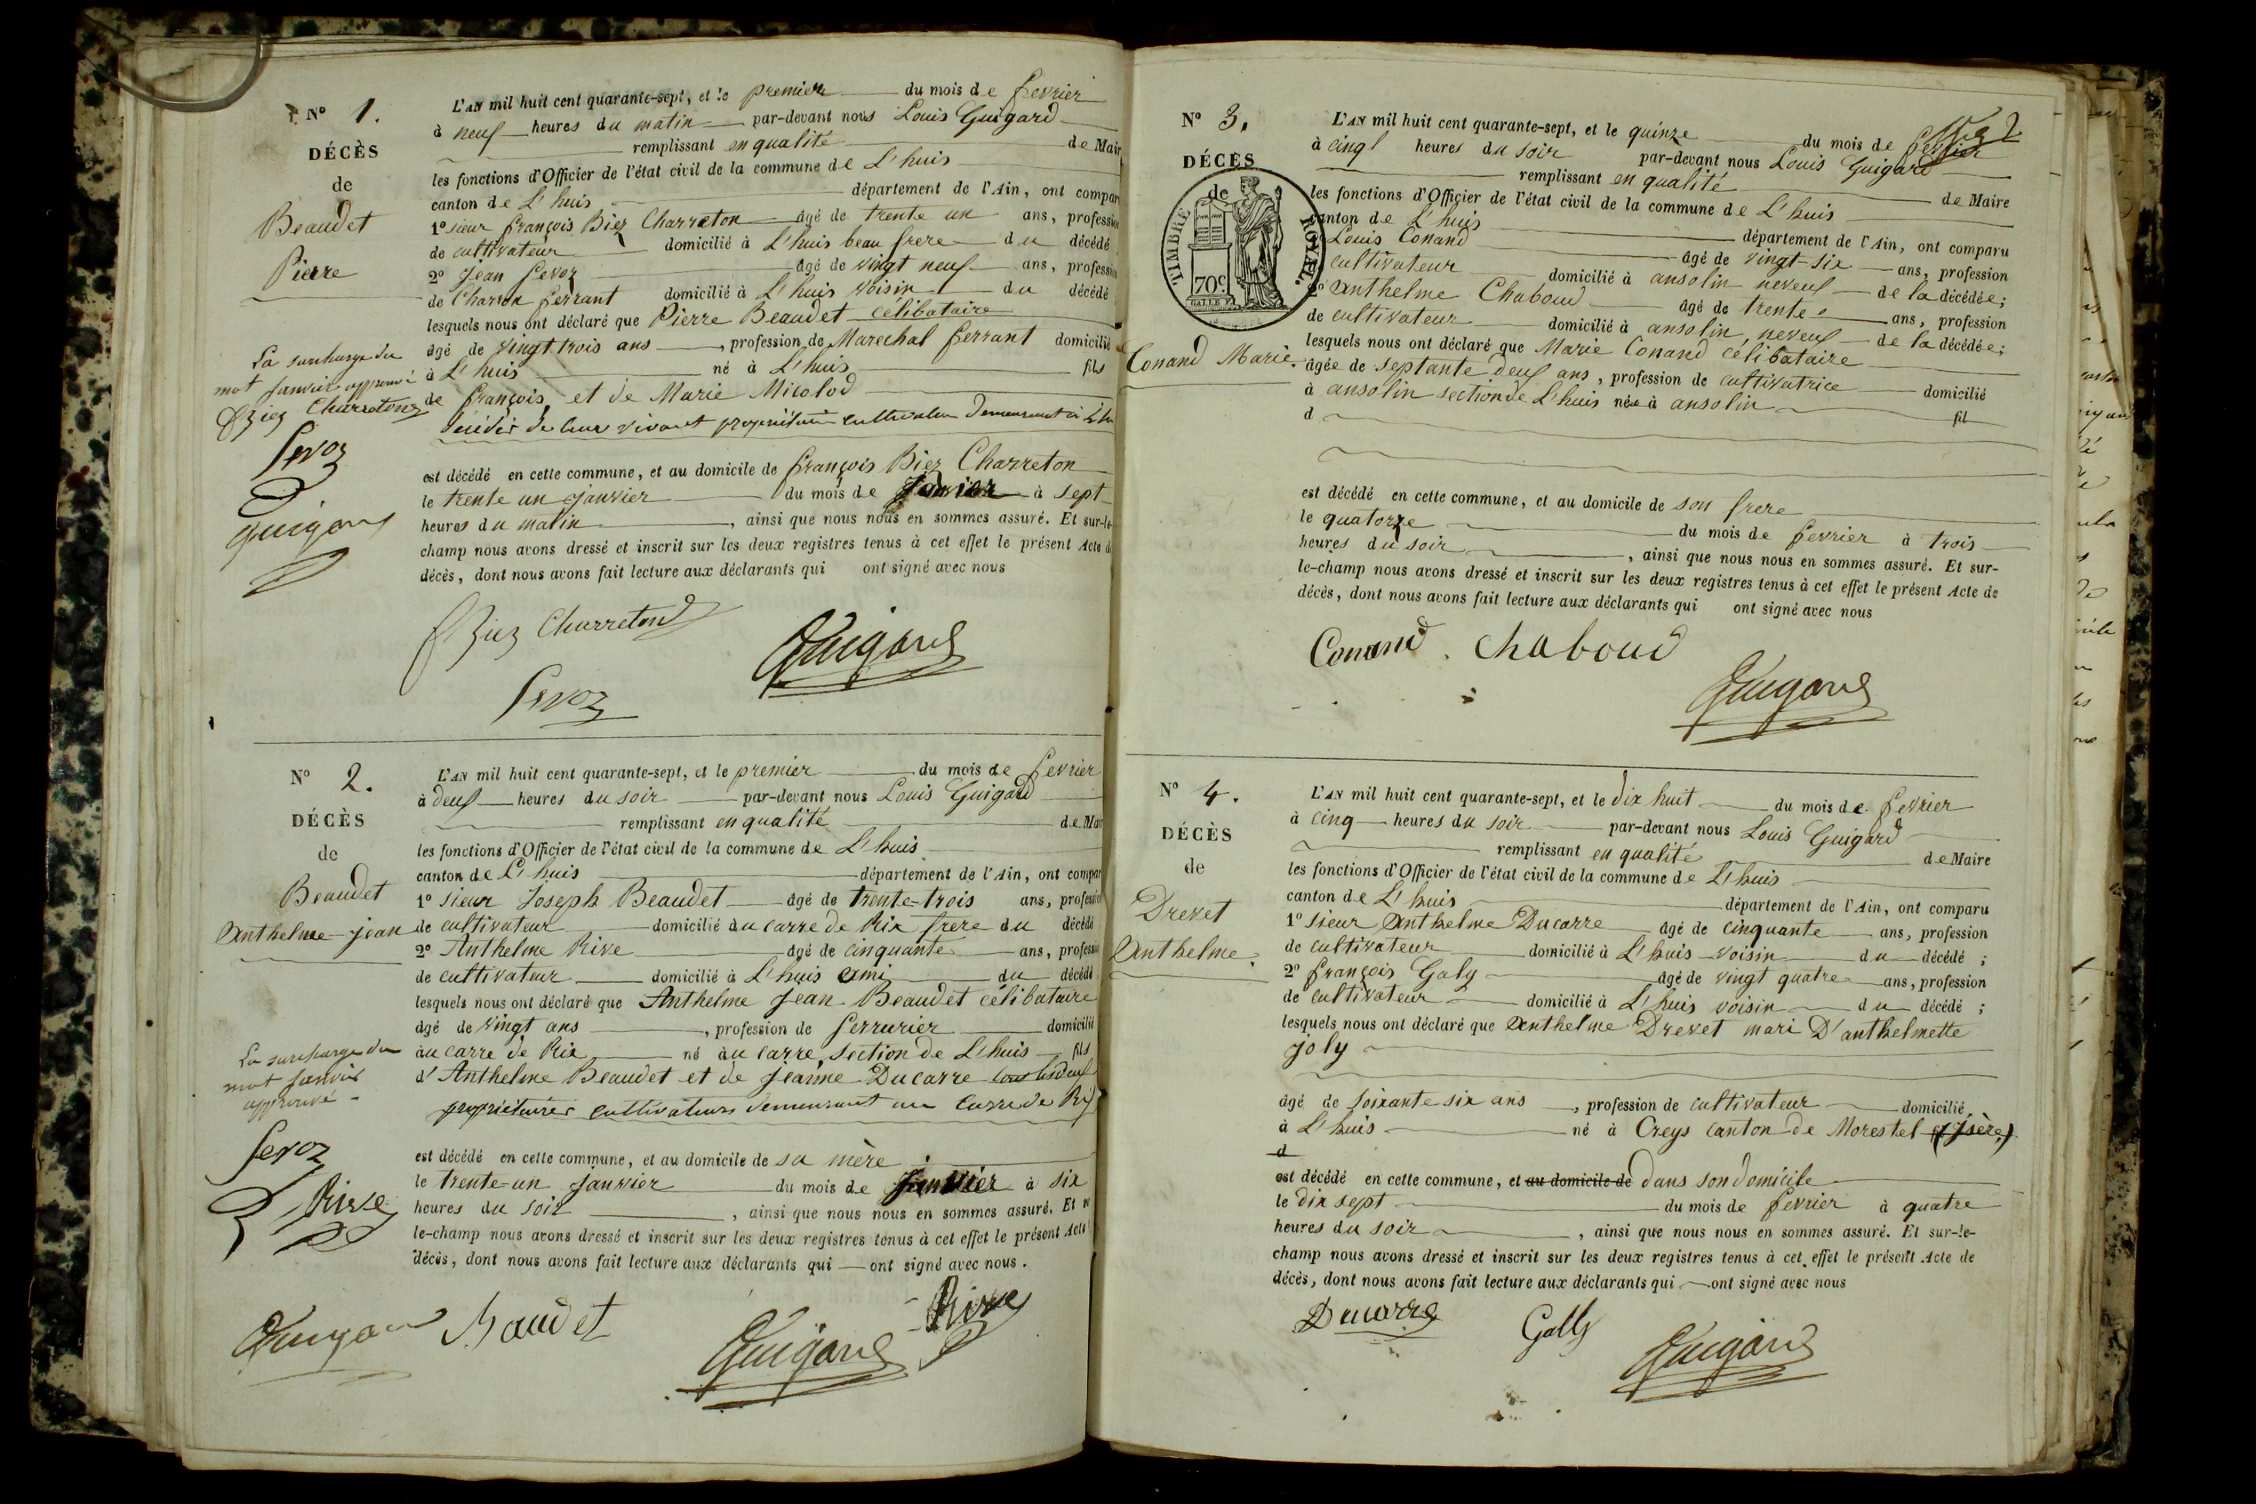 N° 1.
DÉCÈS
de
Beaudet
Pierre
L'AN mil huit cent quarante-sept, et le premier du mois de fevrier
à neuf heures du matin par-devant nous Louis Guigard
remplissant en qualité de Mair
les fonctions d'Officier de l'état civil de la commune de L'huis
canton de L'huis département de l'Ain, ont compar
1° sieur françois Biez Charreton âgé de trente un ans, profession
de cultivateur domicilié à L'huis beau frere du décédé
2° Jean Sevoz âgé de vingt neuf ans, profession
de Charron ferrant domicilié à L'huis voisin du décédé
lesquels nous ont déclaré que Pierre Beaudet célibataire
âgé de vingt trois ans, profession de Marechal ferrant domicilié
à L'huis né à L'huis fils
de françois et de Marie Micolod
décédés de leur vivant propriétaires cultivateurs demeurant à
La surcharge du
mot Janvier approuvé
Biez Charreton
Sevoz
Guigard
est décédé en cette commune, et au domicile de françois Biez Charreton
le trente un janvier du mois de Janvier à sept
heures du matin, ainsi que nous nous en sommes assuré. Et sur-le-
champ nous avons dressé et inscrit sur les deux registres tenus à cet effet le présent Acte d
décès, dont nous avons fait lecture aux déclarants qui ont signé avec nous
Biez Charreton
Guigard
Sevoz
N° 2.
DÉCÈS
de
Beaudet
Anthelme jean
L'AN mil huit cent quarante-sept, et le premier du mois de fevrier
à deux heures du soir par-devant nous Louis Guigard
remplissant en qualité de Mai
les fonctions d'Officier de l'état civil de la commune de L'huis
canton de L'huis département de l'Ain, ont compar
1° sieur Joseph Beaudet âgé de trente-trois ans, profession
de cultivateur domicilié au carre de Rix frere du décédé
2° Anthelme Rive âgé de cinquante ans, profession
de cultivateur domicilié à L'huis ami du décédé
lesquels nous ont déclaré que Anthelme Jean Beaudet célibataire
âgé de vingt ans, profession de serrurier domicilié
au carre de Rix né au carre, section de L'huis fils
d'Anthelme Beaudet et de Jeanne Ducarre tous les deux
propriétaires cultivateurs demeurant au Carre de Rix
La surcharge du
mot Janvier
approuvé
Sevoz
Rive
est décédé en cette commune, et au domicile de sa mère
le trente-un janvier du mois de Janvier à six
heures du soir, ainsi que nous nous en sommes assuré. Et
le-champ nous avons dressé et inscrit sur les deux registres tenus à cet effet le présent Acte
décès, dont nous avons fait lecture aux déclarants qui ont signé avec nous.
Guigard Baudet Guigard Rive
N° 3.
DÉCÈS
de
TIMBRE ROYAL.
70c
Conand Marie.
L'AN mil huit cent quarante-sept, et le quinze du mois de fevrier
à cinq heures du soir par-devant nous Louis Guigard
remplissant en qualité de Maire
les fonctions d'Officier de l'état civil de la commune de L'huis
canton de L'huis département de l'Ain, ont comparu
Louis Conand âgé de vingt-six ans, profession
cultivateur domicilié à ansolin neveu de la décédée;
2° Anthelme Chaboud âgé de trente ans, profession
de cultivateur domicilié à ansolin, neveu de la décédée;
lesquels nous ont déclaré que Marie Conand célibataire
âgée de septante deux ans, profession de cultivatrice domicilié
à ansolin section de L'huis née à ansolin
d fil
est décédé en cette commune, et au domicile de son frere
le quatorze du mois de fevrier à trois
heures du soir, ainsi que nous nous en sommes assuré. Et sur-
le-champ nous avons dressé et inscrit sur les deux registres tenus à cet effet le présent Acte de
décès, dont nous avons fait lecture aux déclarants qui ont signé avec nous
Conand. Chaboud
Guigard
N° 4.
DÉCÈS
de
Drevet
Anthelme.
L'AN mil huit cent quarante-sept, et le dix huit du mois de fevrier
à cinq heures du soir par-devant nous Louis Guigard
remplissant en qualité de Maire
les fonctions d'Officier de l'état civil de la commune de L'huis
canton de L'huis département de l'Ain, ont comparu
1° sieur Anthelme Ducarre âgé de cinquante ans, profession
de cultivateur domicilié à L'huis voisin du décédé;
2° françois Galy âgé de vingt quatre ans, profession
de cultivateur domicilié à L'huis voisin du décédé;
lesquels nous ont déclaré que Anthelme Drevet mari D'anthelmette
joly
âgé de soixante six ans, profession de cultivateur domicilié
à L'huis né à Creys canton de Morestel (Isère)
d
est décédé en cette commune, et au domicile de dans son domicile
le dix sept du mois de fevrier à quatre
heures du soir, ainsi que nous nous en sommes assuré. Et sur-le-
champ nous avons dressé et inscrit sur les deux registres tenus à cet effet le présent Acte de
décès, dont nous avons fait lecture aux déclarants qui ont signé avec nous
Ducarre Gally Guigard